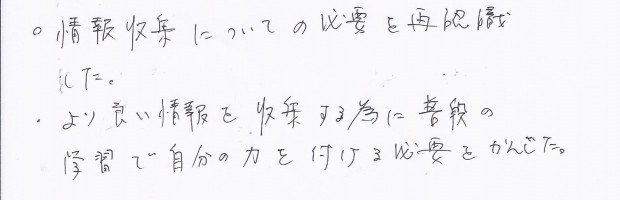 ○ 情報収集についての必要を再認識
した。
・より良い情報を収集する為に普段の
学習で自分の力を付ける必要をかんじた。